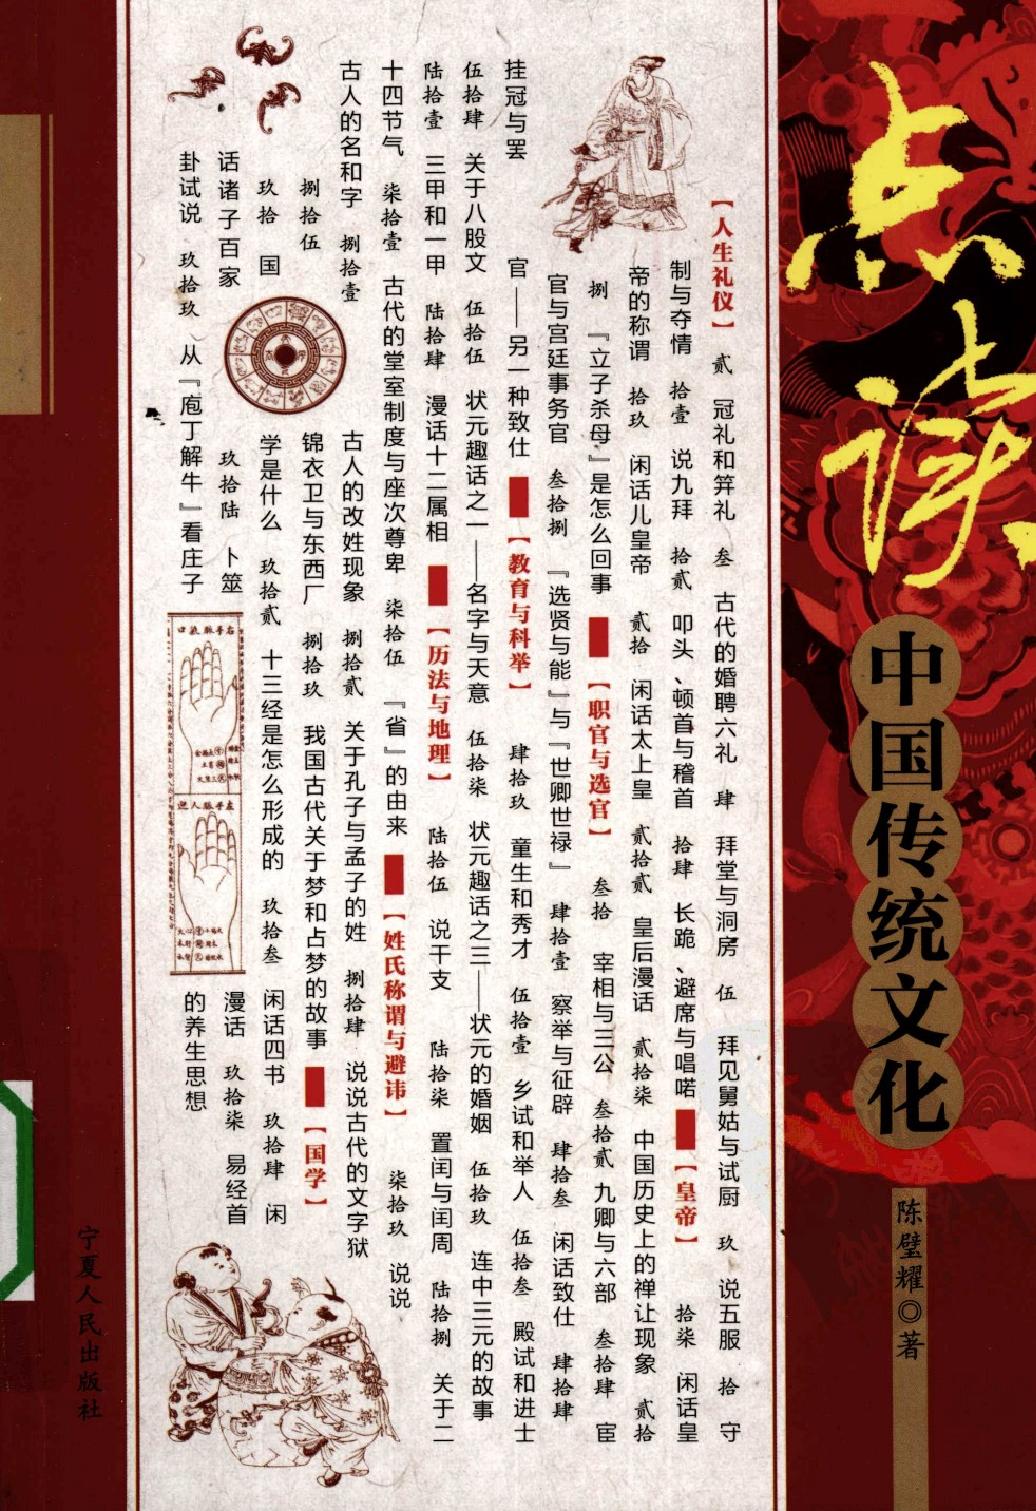 点读
中国传统文化
陈璧耀◎著
【人生礼仪】 贰 冠礼和笄礼 叁 古代的婚聘六礼 肆 拜堂与洞房 伍 拜见舅姑与试厨 玖 说五服 拾 守
制与夺情 拾壹 说九拜 拾贰 叩头、顿首与稽首 拾肆 长跪、避席与唱喏 【皇帝】 拾柒 闲话皇
帝的称谓 拾玖 闲话儿皇帝 贰拾 闲话太上皇 贰拾贰 皇后漫话 贰拾柒 中国历史上的禅让现象 贰拾
捌 『立子杀母』是怎么回事 【职官与选官】 叁拾 宰相与三公 叁拾贰 九卿与六部 叁拾肆 宦
官与宫廷事务官 叁拾捌 『选贤与能』与『世卿世禄』 肆拾壹 察举与征辟 肆拾叁 闲话致仕 肆拾肆
挂冠与罢
官——另一种致仕 【教育与科举】 肆拾玖 童生和秀才 伍拾壹 乡试和举人 伍拾叁 殿试和进士
伍拾肆 关于八股文 伍拾伍 状元趣话之一——名字与天意 伍拾柒 状元趣话之三——状元的婚姻 伍拾玖 连中三元的故事
陆拾壹 三甲和一甲 陆拾肆 漫话十二属相 【历法与地理】 陆拾伍 说干支 陆拾柒 置闰与闰周 陆拾捌 关于二
十四节气 柒拾壹 古代的堂室制度与座次尊卑 柒拾伍 『省』的由来 【姓氏称谓与避讳】 柒拾玖 说说
古人的名和字 捌拾壹 古人的改姓现象 捌拾贰 关于孔子与孟子的姓 捌拾肆 说说古代的文字狱
捌拾伍 锦衣卫与东西厂 捌拾玖 我国古代关于梦和占梦的故事 【国学】
玖拾 国学是什么 玖拾贰 十三经是怎么形成的 玖拾叁 闲话四书 玖拾肆 闲
话诸子百家 玖拾陆 卜筮漫话 玖拾柒 易经首
卦试说 玖拾玖 从『庖丁解牛』看庄子的养生思想
宁夏人民出版社